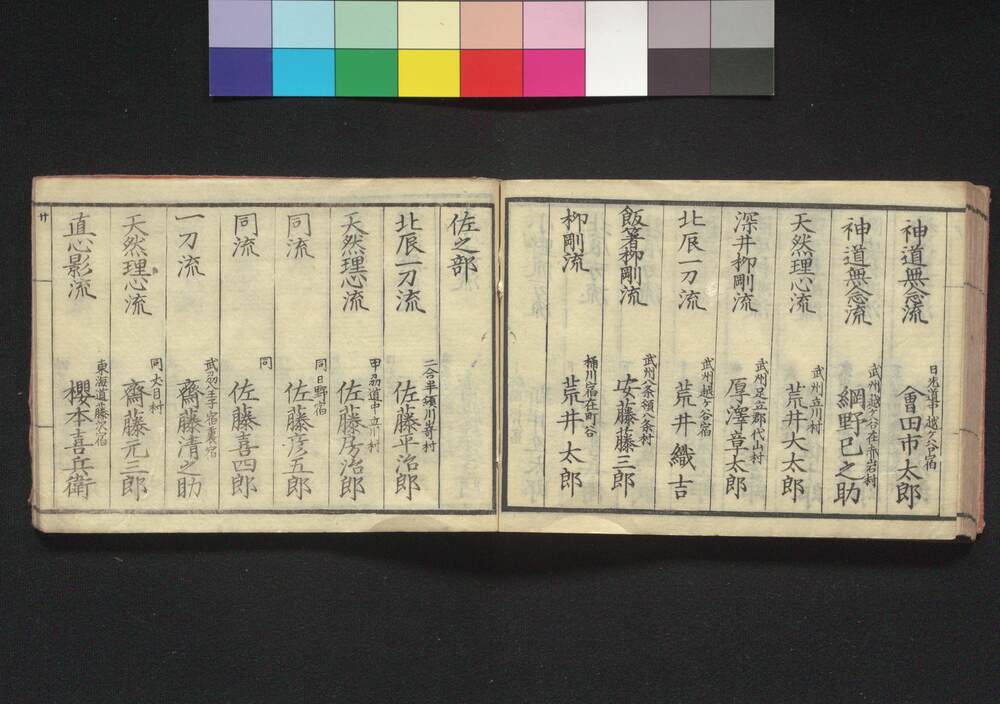 神道無念流
日光道中越ケ谷宿
會田市太郎
神道無念流
武州越ケ谷在赤岩村
綱野巳之助
天然理心流
武州立川村
荒井大太郎
深井栁剛流
武州足立郡代山村
厚澤章太郎
北辰一刀流
武州越ケ谷宿
荒井織吉
飯箸栁剛流
武州八条領八条村
安藤藤三郎
栁剛流
桶川宿在町谷
荒井太郎
佐之部
北辰一刀流
二合半領川嵜村
佐藤平治郎
天然理心流
甲刕道中立川村
佐藤房治郎
同流
同日野宿
佐藤彦五郎
同流
同
佐藤喜四郎
一刀流
武刕八王子宿裏宿
齋藤清之助
天然理心流
同大目村
齋藤元三郎
直心影流
東海道藤沢宿
櫻本喜兵衛
廿